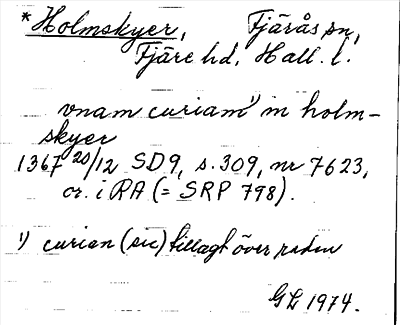 *Holmskyer, Fjärås sn,
Fjäre hd, Hall. l.
vnam curiam¹ in holm-
skyer
1367 20/12 SD9, s. 309, nr 7623,
or. i RA (= SRP 798).
¹) curian (sic) tillagt över raden
GL 1974.